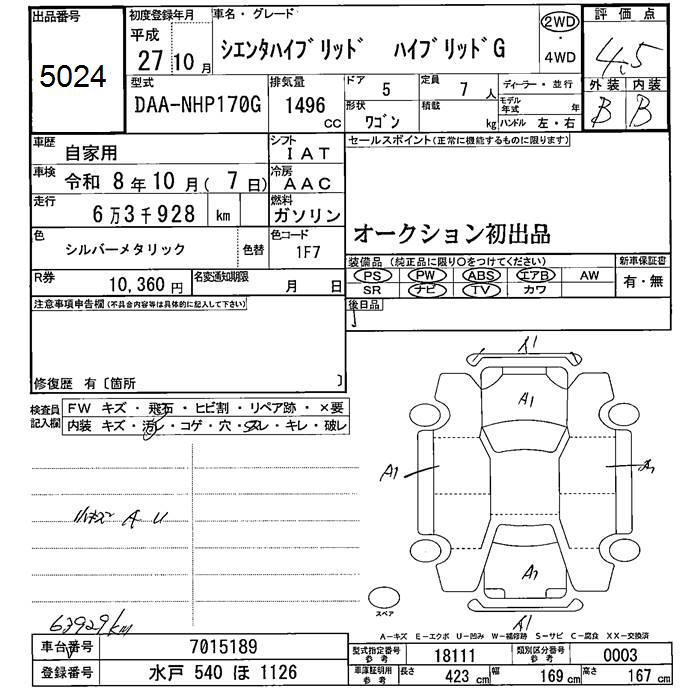 出品番号
5024
初度登録年月
平成
27 10 月
車名・グレード
シエンタハイブリッド ハイブリッドG
2WD
・
4WD
評価点
4.5
外装 内装
B B
型式
DAA-NHP170G
排気量
1496
cc
ドア
5
定員
7 人
ディーラー・並行
形状
ワゴン
積載
kg
モデル年式 年
ハンドル 左・右
車歴
自家用
シフト
IAT
セールスポイント(正常に機能するものに限ります)
車検
令和 8年10月( 7日)
冷房
AAC
走行
6万3千928 km
燃料
ガソリン
オークション初出品
色
シルバーメタリック
色替
色コード
1F7
装備品 (純正品に限り○をつけてください)
新車保証書
PS PW ABS エアB AW
有・無
SR ナビ TV カワ
R券
10,360 円
名変通知期限
月 日
後日品
注意事項申告欄(不具合内容等は具体的に記入して下さい)
修復歴 有〔箇所 〕
検査員
記入欄
FW キズ・飛石・ヒビ割・リペア跡・×要
内装 キズ・汚レ・コゲ・穴・スレ・キレ・破レ
A1
A1
A1
A1
A U
A1
A1
スペア
63929km
A-キズ E-エクボ U-凹み W-補修跡 S-サビ C-腐食 XX-交換済
車台番号
7015189
型式指定番号
参考
18111
類別区分番号
参考
0003
登録番号
水戸 540 ほ 1126
車庫証明用
参考
長さ
423 cm
幅
169 cm
高さ
167 cm